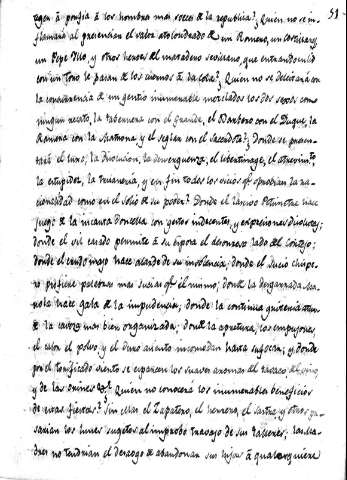 51
rigen á porfia á los hombres mas soeces de la republica? ¿Quien no se in-
flamará al presenciar el valor atolondrado de un Romero, un Costillares,
un Pepe Illo, y otros heroes del matadero sevillano, que entrando en lid
con un toro le pasan de los cuernos á la cola? ¿Quien no se deleitará con
la concurrencia de un gentio innumerable mezclados los dos sexos como
ningun recato, la tabernera con el Grande, el Barbero con el Duque, la
Ramera con la Matrona y el seglar con el Sacerdote? ¿donde se presen-
tará el lujo, la disolucion, la desverguenza, el libertinage, el atrevimto,
la estupidez, la truaneria, y en fin todos los vicios qe oprobian la ra-
cionalidad como en el solio de su poder? Donde el lascivo Petimetre hace
fuego á la incauta doncella con gestos indecentes, y expresiones disolutas;
donde el vil casado permite á su esposa el desonrroso lado del Cortejo;
donde el crudo majo hace alarde de su insolencia; donde el sucio chispe-
ro profiere palabras mas sucias qe él mismo; donde la desgarrada Ma-
nola hace gala de la impudencia; donde la continua griteria aturde
la cabeza mas bien organizada; donde la apretura, los empujones,
el calor el polvo, y el duro asiento incomodan hasta sofocar; y donde
por el tonificado viento se esparcen los suaves aromas del tabaco el vino
y de los orines? ¿Quien no conocerá los innumerables beneficios
de estas fiestas? Sin ellas el Zapatero, el herrero, el sastre y otros pa-
sarian los lunes sugetos al improbo travajo de sus talleres; las Ma-
dres no tendrian el desaogo de abandonar sus hijas á qualesquiera